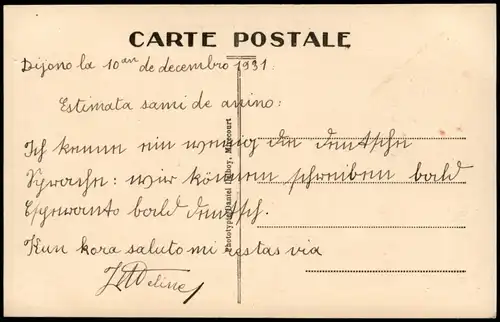 CARTE POSTALE
Dijono la 10an de decembro 1931.
Estimata samideanino:
Ich kenne ein wenig die deutsche
Sprache: wir können schreiben bald
Esperanto bald deutsch.
Kun kora saluto mi restas via
Phototypie Daniel Delboy, Mirecourt